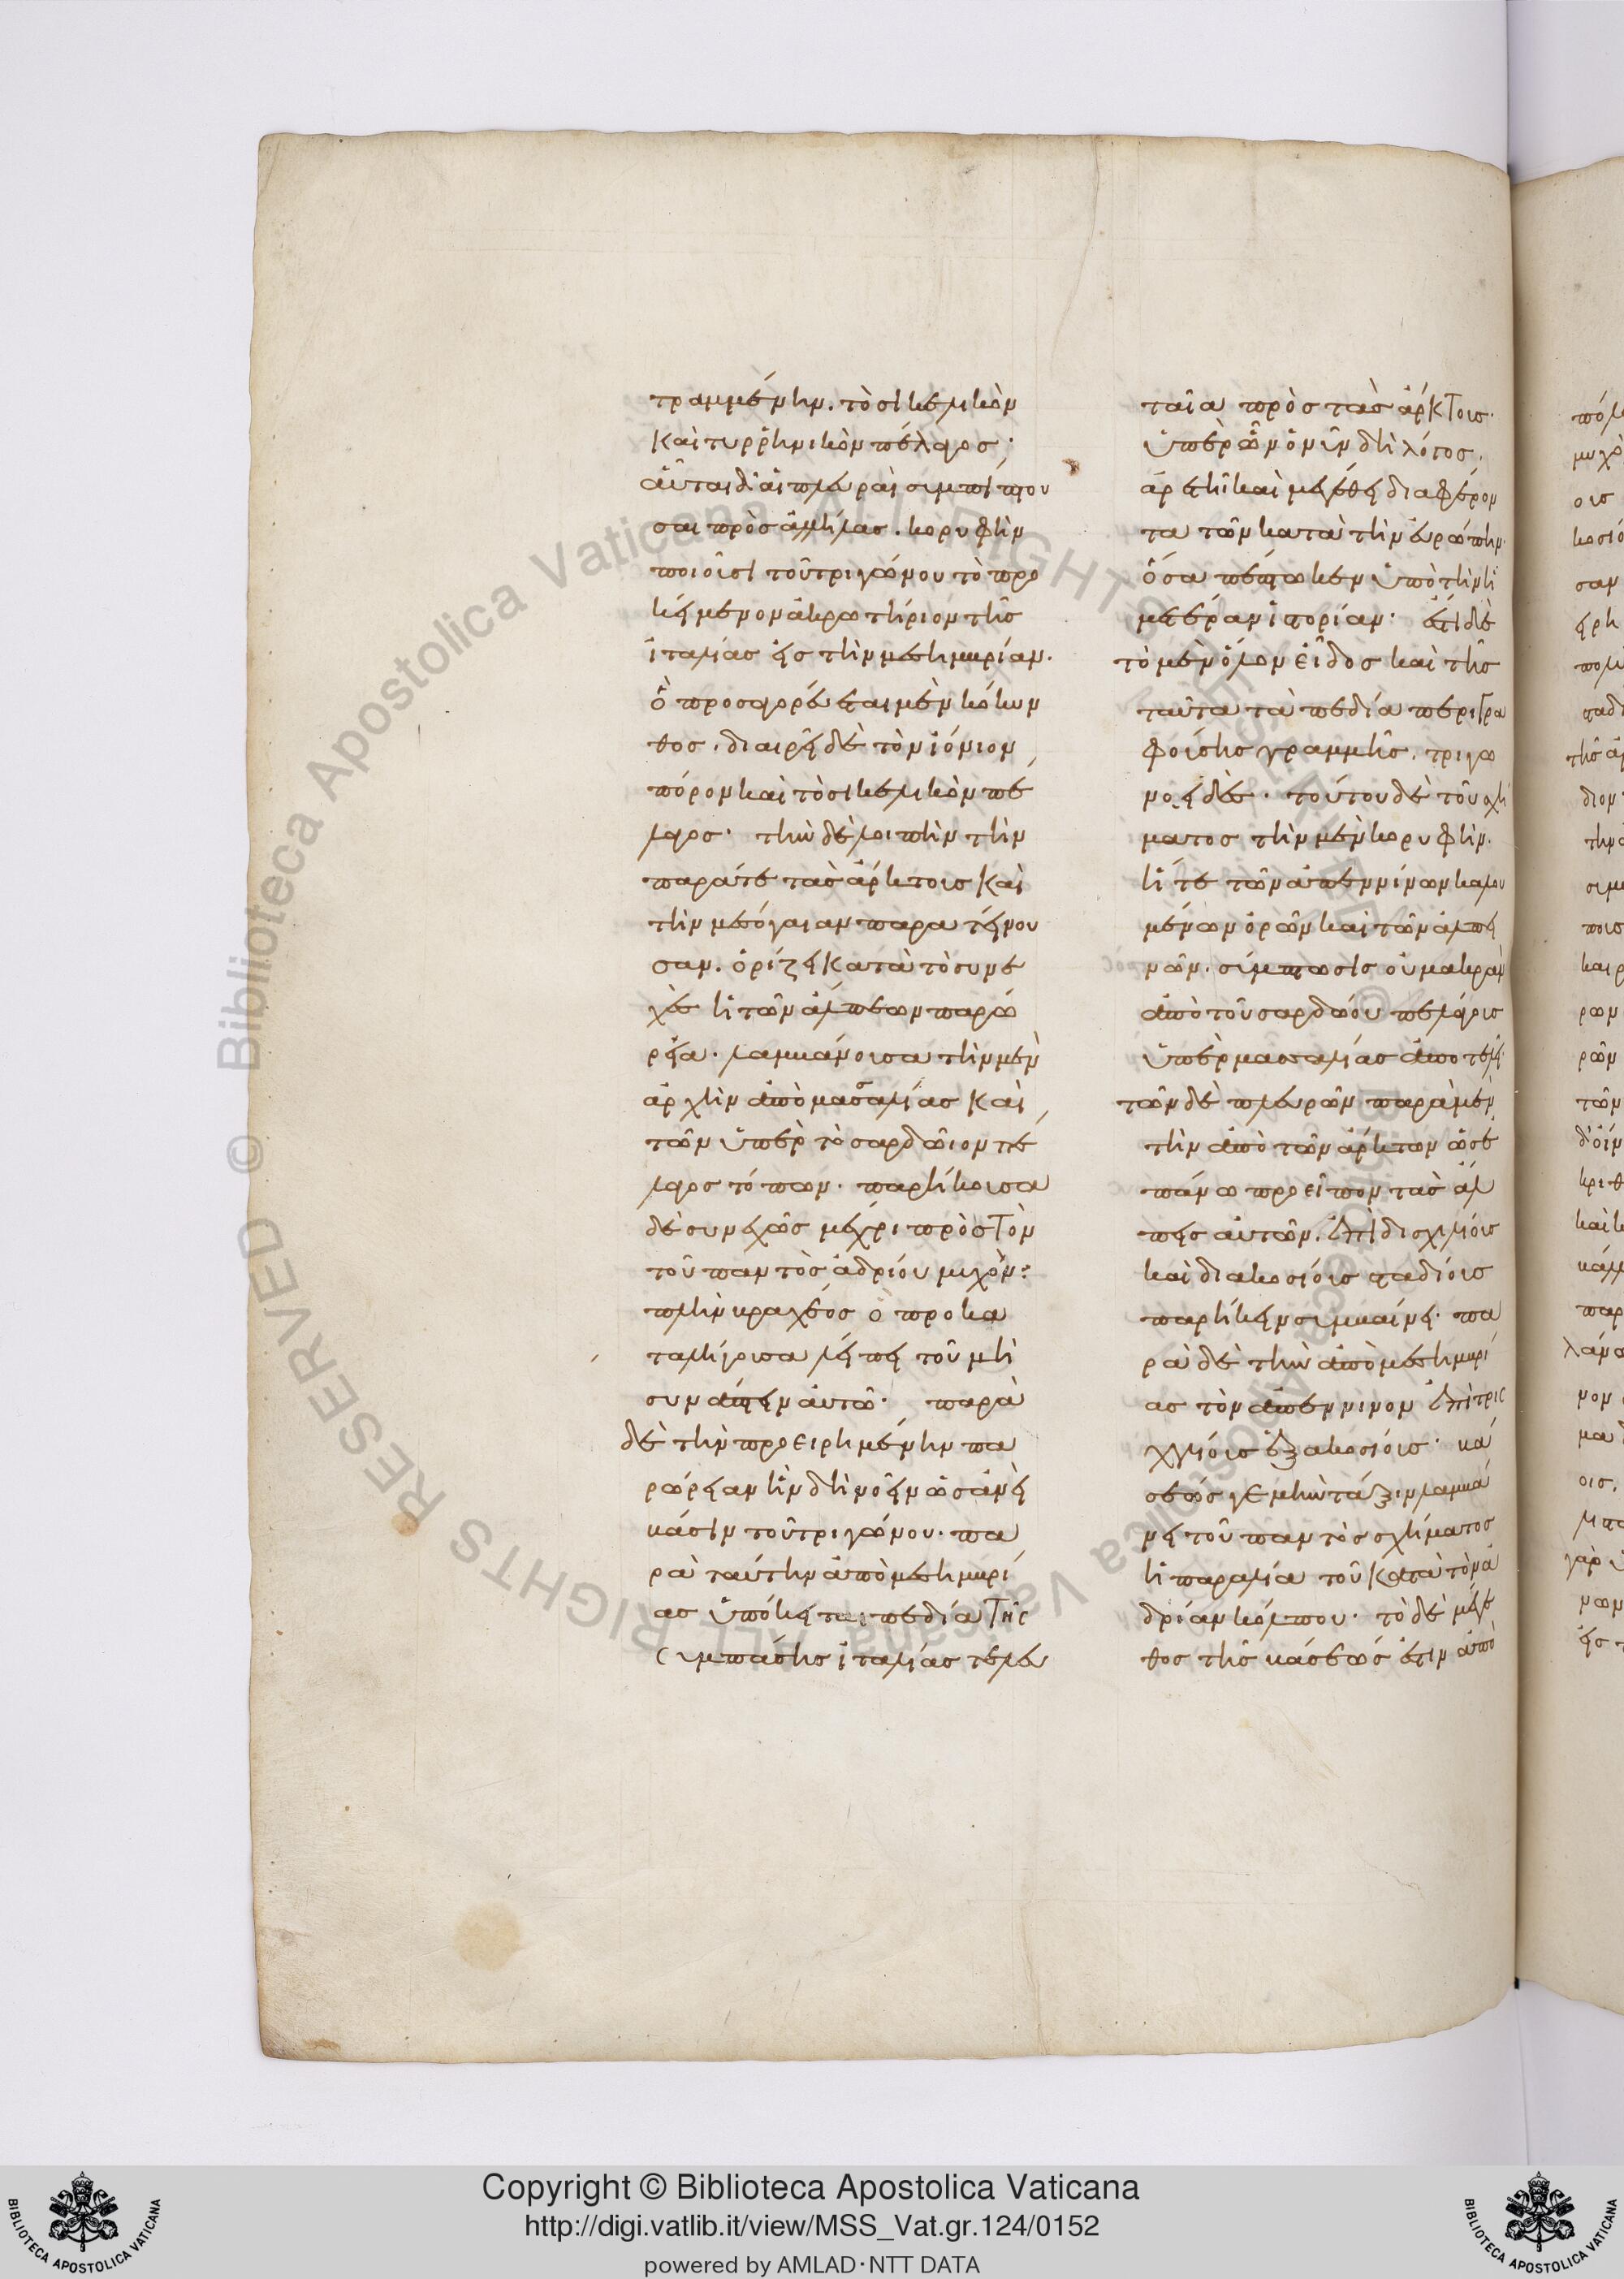 τραμμένην. τὸ σικελικὸν
καὶ τυρρηνικὸν πέλαγος·
αὗται δ' αἱ πλευραὶ συμπίπτου
σαι πρὸς ἀλλήλας. κορυφὴν
ποιοῦσι τοῦ τριγώνου τὸ προ
κείμενον ἀκρωτήριον τῆς
ἰταλίας εἰς τὴν μεσημβρίαν.
ὃ προσαγορεύεται μὲν κόκυν
θος. διαιρεῖ δὲ τὸν ἰόνιον
πόρον καὶ τὸ σικελικὸν πέ
λαγος· τὴν δὲ λοιπὴν τὴν
παρά τε τὰς ἄρκτους καὶ
τὴν μεσόγαιαν παρατείνου
σαν. ὁρίζει κατὰ τὸ συνε
χὲς ἡ τῶν ἄλπεων παρώ
ρεια. λαμβάνουσα τὴν μὲν
ἀρχὴν ἀπὸ μασσαλίας καὶ
τῶν ὑπὲρ τὸ σαρδῶιον πέ
λαγος τόπων. παρήκουσα
δὲ συνεχῶς μέχρι πρὸς τὸν
τοῦ παντὸς ἀδρίου μυχόν:
πλὴν βραχέος ὃ προκα
ταλήγουσα λείπει τοῦ μὴ
συνάπτειν αὐτῶ· παρὰ
δὲ τὴν προειρημένην πα
ρώρειαν ἣν δὴ νοεῖν ὡσανεὶ
βάσιν τοῦ τριγώνου. πα
ρὰ ταύτην ἀπὸ μεσημβρί
ας ὑπόκειται πεδία τῆς
συμπάσης ἰταλίας τελευ
ταῖα πρὸς τὰς ἄρκτους.
ὑπὲρ ὧν ὁ νῦν δὴ λόγος.
ἀρετῆ καὶ μεγέθει διαφέρον
τα τῶν κατὰ τὴν εὐρώπην.
ὅσα πέπτωκεν ὑπὸ τὴν ἡ
μετέραν ἱστορίαν· ἔστι δὲ
τὸ μὲν ὅλον εἶδος καὶ τῆς
ταῦτα τὰ πεδία περιγρα
φούσης γραμμῆς. τριγω
νοειδές· τούτου δὲ τοῦ σχή
ματος τὴν μὲν κορυφὴν.
ἥ τε τῶν ἀπεννίνων καλου
μένων ὀρῶν καὶ τῶν ἀλπει
νῶν. σύμπτωσις οὐ μακρὰν
ἀπὸ τοῦ σαρδώου πελάγους
ὑπὲρ μασσαλίας ἀποτελεῖ.
τῶν δὲ πλευρῶν παρὰ μὲν
τὴν ἀπὸ τῶν ἄρκτων ὡς ἐ
πάνω προεῖπον τὰς ἄλ
πεις αὐτῶν. ἐπὶ δισχιλίους
καὶ διακοσίους σταδίους
παρήκειν συμβαίνει. πα
ρὰ δὲ τὴν ἀπὸ μεσημβρί
ας τὸν ἀπέννινον ἐπὶ τρις
χιλίους ἑξακοσίους· βά
σεώς γε μὴν τάξιν λαμβά
νει τοῦ παντὸς σχήματος
ἡ παραλία τοῦ κατὰ τὸν ἀ
δρίαν κόλπου. τὸ δὲ μέγε
θος τῆς βάσεώς ἐστιν ἀπὸ
Copyright © Biblioteca Apostolica Vaticana
http://digi.vatlib.it/view/MSS_Vat.gr.124/0152
powered by AMLAD·NTT DATA